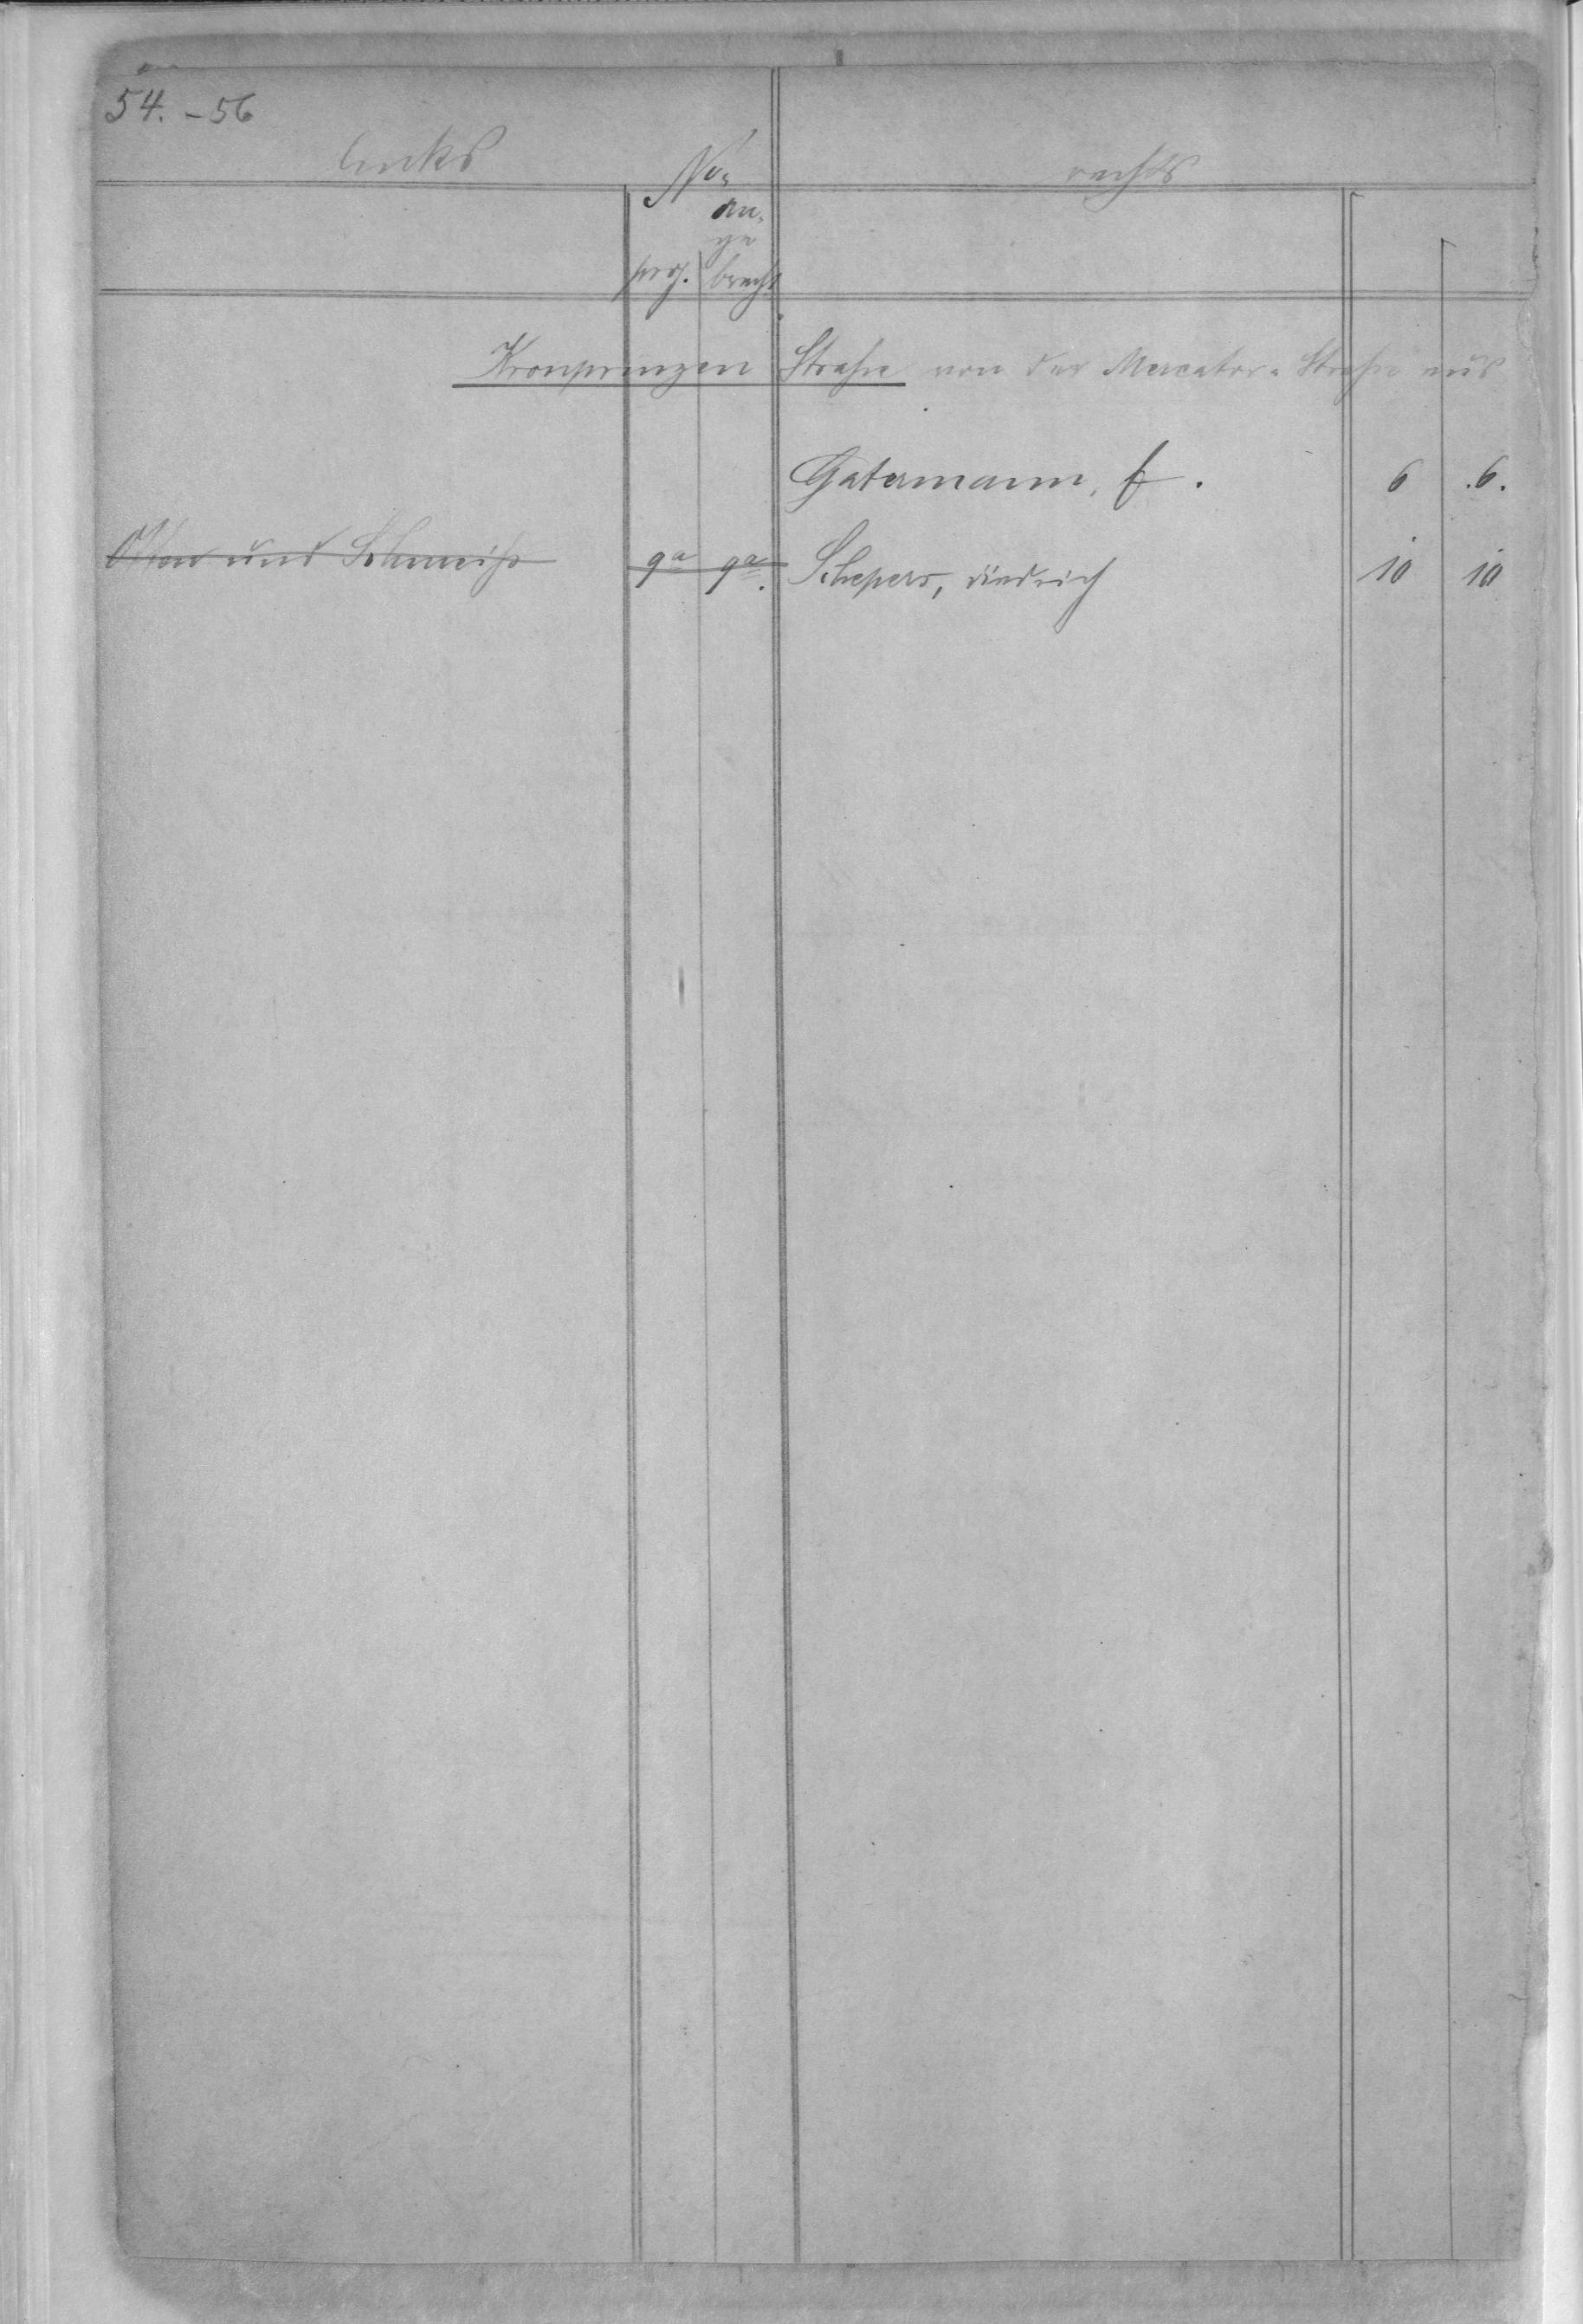 54. - 56
links
No.
rechts
an-
ge
proj. bracht
Kronprinzen Straße von der Mercator-Straße aus
Gatermann, f. 6 6.
und 9a 9a. Schepers, diedrich 10 10